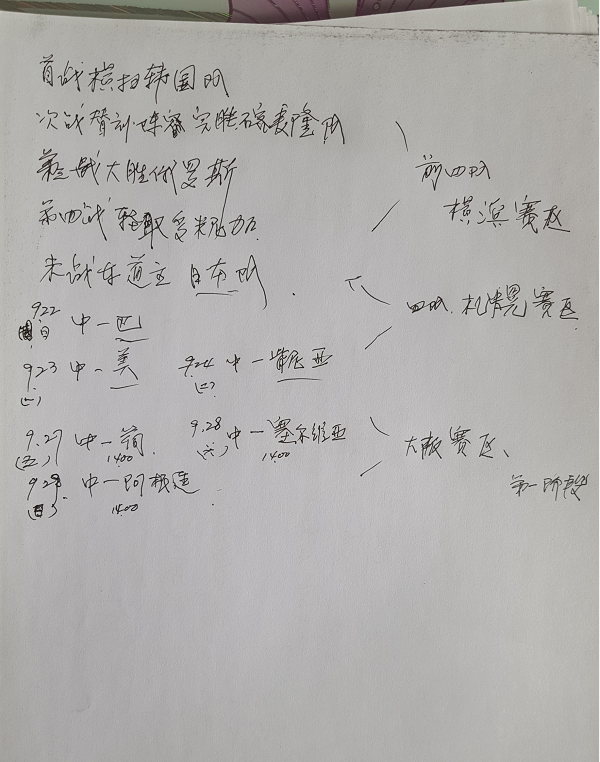 首战横扫韩国队
次战替补阵容完胜喀麦隆队
第三战大胜俄罗斯
前四队
第四战轻取多米尼加
横滨赛区
末战东道主 日本队
9.22 中一巴
(日)
四队 札幌赛区
9.23 中一美 9.24 中一肯尼亚
(一) (二)
9.27 中一荷 9.28 中一塞尔维亚
(五) 14:00 (六) 14:00
大阪赛区、
9.29 中一阿根廷
第一阶段
(日) 14:00